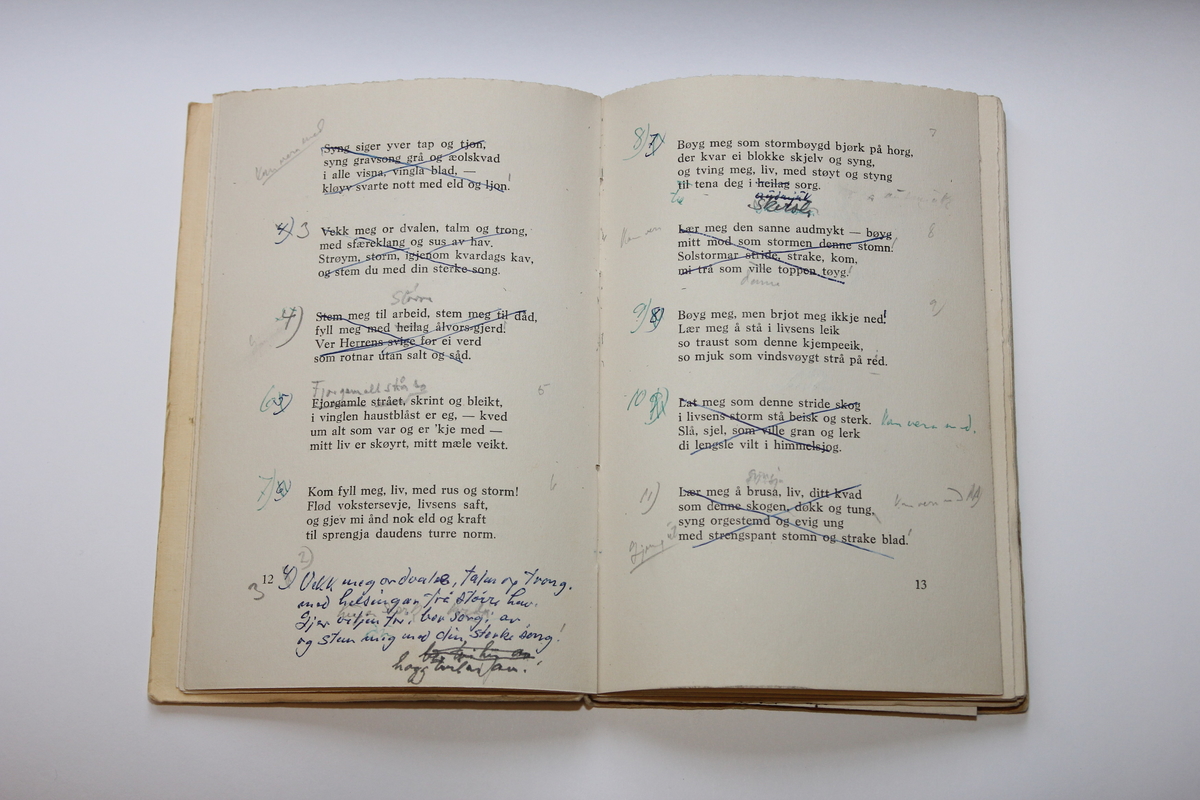 Kan vera med
Syng siger yver tap og tjon,
syng gravsong grå og æolskvad
i alle visna, vingla blad, —
kløyv svarte nott med eld og ljon!
4) 3
Vekk meg or dvalen, talm og trong,
med sfæreklang og sus av hav.
Strøym, storm, igjenom kvardags kav,
og stem du med din sterke song.
Større
4)
Stem meg til arbeid, stem meg til dåd,
fyll meg med heilag ålvors-gjerd!
Ver Herrens svige for ei verd
som rotnar utan salt og såd.
Fjorgamalt strå
6) 5)
5
Fjorgamle strået, skrint og bleikt,
i vinglen haustblåst er eg, — kved
um alt som var og er 'kje med —
mitt liv er skøyrt, mitt mæle veikt.
7) 6)
6
Kom fyll meg, liv, med rus og storm!
Flød vokstersevje, livsens saft,
og gjev mi ånd nok eld og kraft
til sprengja daudens turre norm.
2)
12
3
Vekk meg or dvale, talm og trong.
med helsingar frå større hav.
Gjer viljen fri, bor sorgi av
og stem meg med din sterke song!
hogg av!
8) 7)
7
Bøyg meg som stormbøygd bjørk på horg,
der kvar ei blokke skjelv og syng,
og tving meg, liv, med støyt og styng
til tena deg i heilag sorg.
audmjuk
Kan vera
8
Lær meg den sanne audmykt — bøyg
mitt mod som stormen denne stomn!
Solstormar stride, strake, kom,
mi trå som ville toppen tøyg!
denne
9) 8)
9)
Bøyg meg, men brjot meg ikkje ned!
Lær meg å stå i livsens leik
so traust som denne kjempeeik,
so mjuk som vindsvøygt strå på réd.
10
Lat meg som denne stride skog
i livsens storm stå beisk og sterk.
Kan vera med.
Slå, sjel, som ville gran og lerk
di lengsle vilt i himmelsjog.
11)
Lær meg å brusa, liv, ditt kvad
som denne skogen, døkk og tung,
Kan vera med
syng orgestemd og evig ung
med strengspant stomn og strake blad!
13